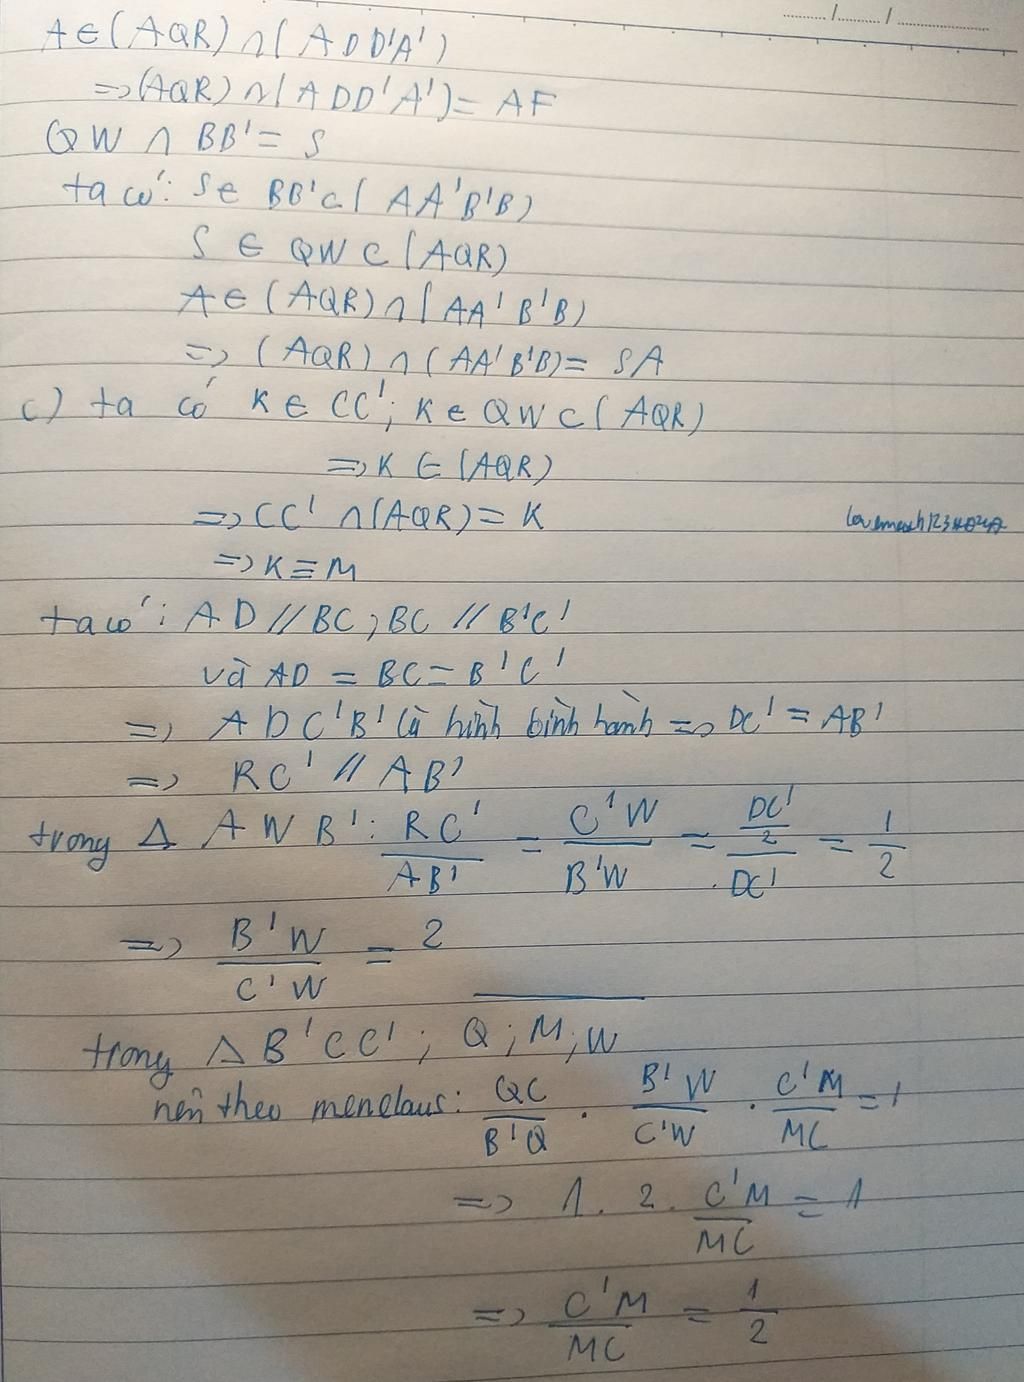 A ∈ (AQR) ∩ (ADD'A')
=> (AQR) ∩ (ADD'A') = AF
QW ∩ BB' = S
ta có: S ∈ BB' ⊂ (AA'B'B)
S ∈ QW ⊂ (AQR)
A ∈ (AQR) ∩ (AA'B'B)
=> (AQR) ∩ (AA'B'B) = SA
c) ta có K ∈ CC'; K ∈ QW ⊂ (AQR)
=> K ∈ (AQR)
=> CC' ∩ (AQR) = K
=> K ≡ M
ta có: AD // BC; BC // B'C'
và AD = BC = B'C'
=> ADC'B' là hình bình hành => DC' = AB'
=> RC' // AB'
trong Δ AWB': RC'/AB' = C'W/B'W = (DC'/2)/DC' = 1/2
=> B'W/C'W = 2
trong Δ B'CC'; Q; M; W
nên theo menelaus: QC/B'Q . B'W/C'W . C'M/MC = 1
=> 1. 2. C'M/MC = 1
=> C'M/MC = 1/2